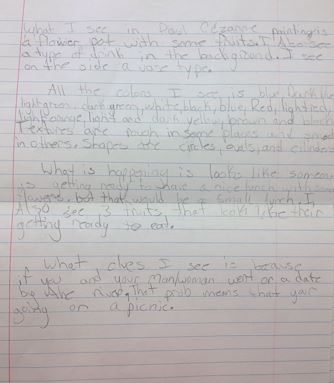 What I see in Paul Cézanne painting is
a flower pot with some fruits. I Also see
a type of drink in the background. I see
on the side a vase type.
All the colors I see is blue, Dark blue
light green, dark green, white, black, blue, Red, light red,
light orange, light and dark yellow, brown and black
Textures are rough in some places and
in others. Shapes are circles, ovals, and cylinders
What is happening is looks like someone
is getting ready to have a nice lunch with some
flowers, but that would be a small lunch. I
Also see 3 fruits that look like their
getting ready to eat.
What clues I see is because
if you and your man/woman went on a date
by the river, that prob means that your
going on a picnic.